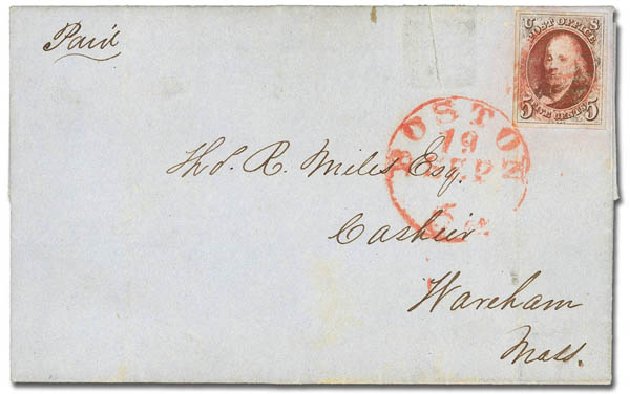 Paid
U S
POST OFFICE
5 FIVE CENTS 5
BOSTON
19
SEP
5 cts
Thos. R. Miles Esq.
Cashier
Wareham
Mass.